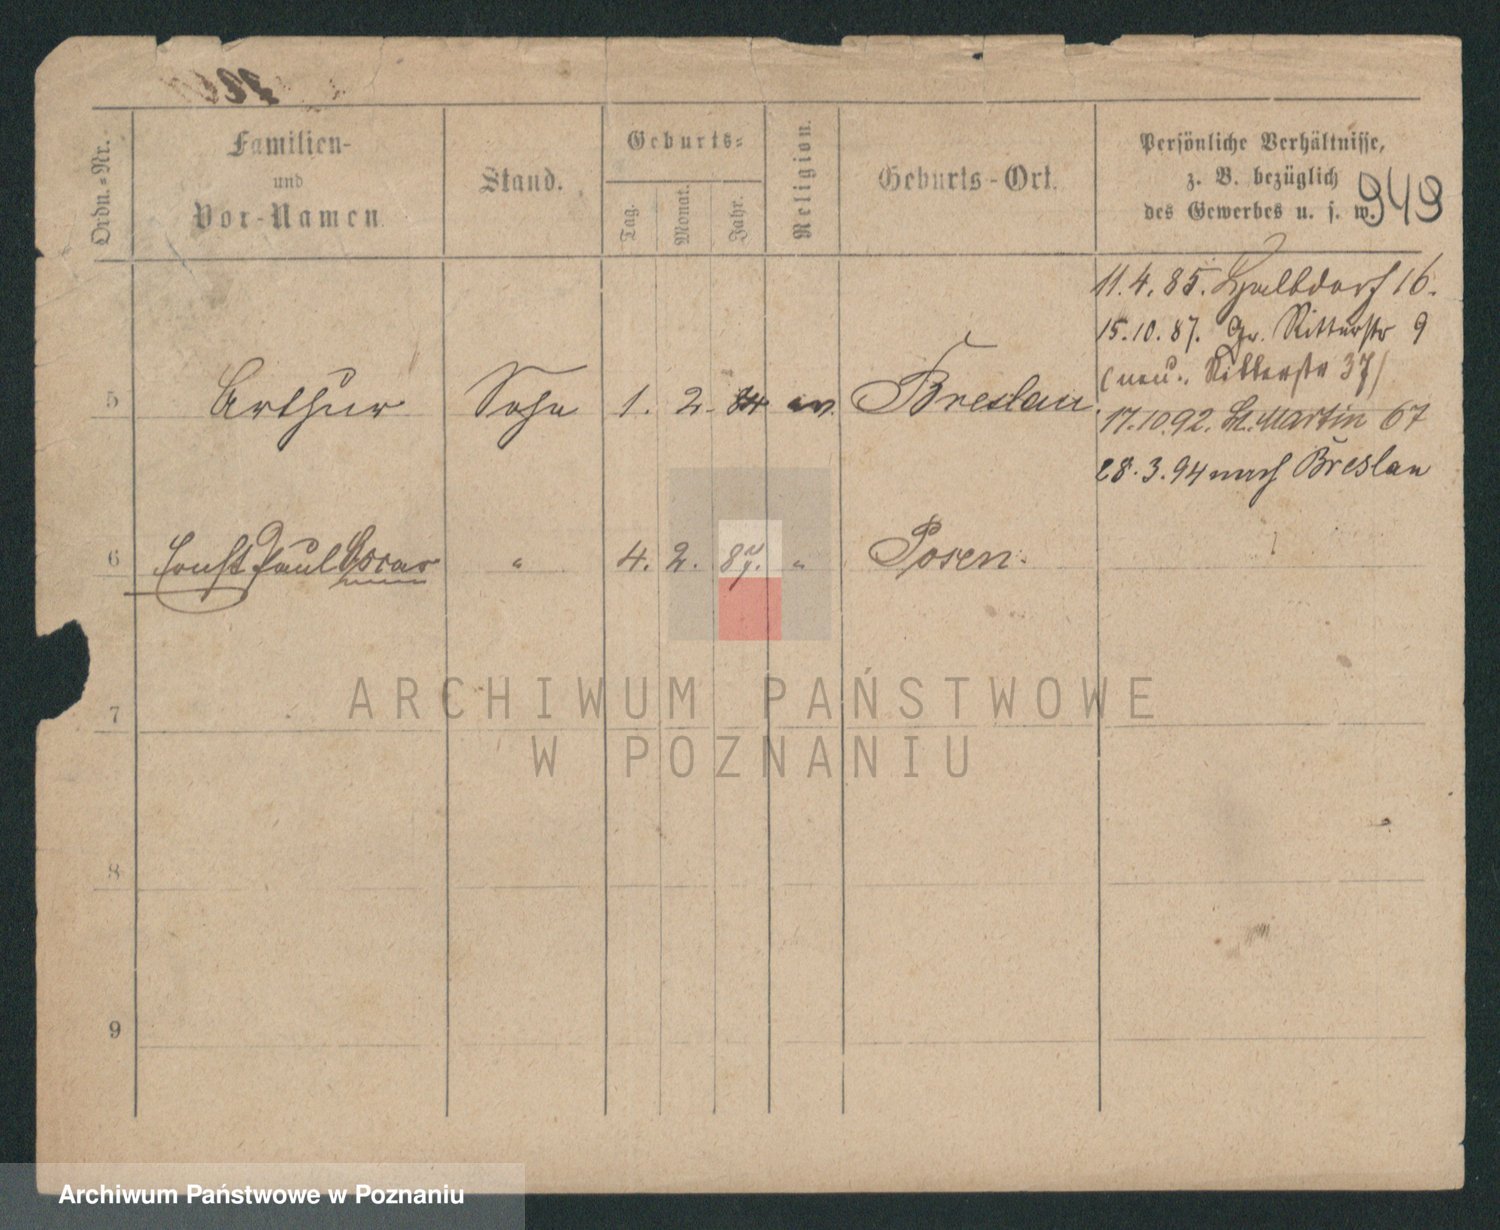 Ordn.-Nr.
Familien-
und
Vor-Namen
Stand.
Geburts-
Tag.
Monat.
Jahr.
Religion.
Geburts-Ort.
Persönliche Verhältnisse,
z. B. bezüglich
des Gewerbes u. s. w.
949
11. 4. 85. Halbdorf 16.
15. 10. 87. Gr. Ritterstr 9
(neu. Ritterstr 37)
17.10.92. St. Martin 67
28. 3. 94 nach Breslau
5 Arthur Sohn 1. 2. 84 ev. Breslau
6 Ernst Paul Oscar " 4. 2. " Posen.
7
8
9
ARCHIWUM PAŃSTWOWE
W POZNANIU
Archiwum Państwowe w Poznaniu